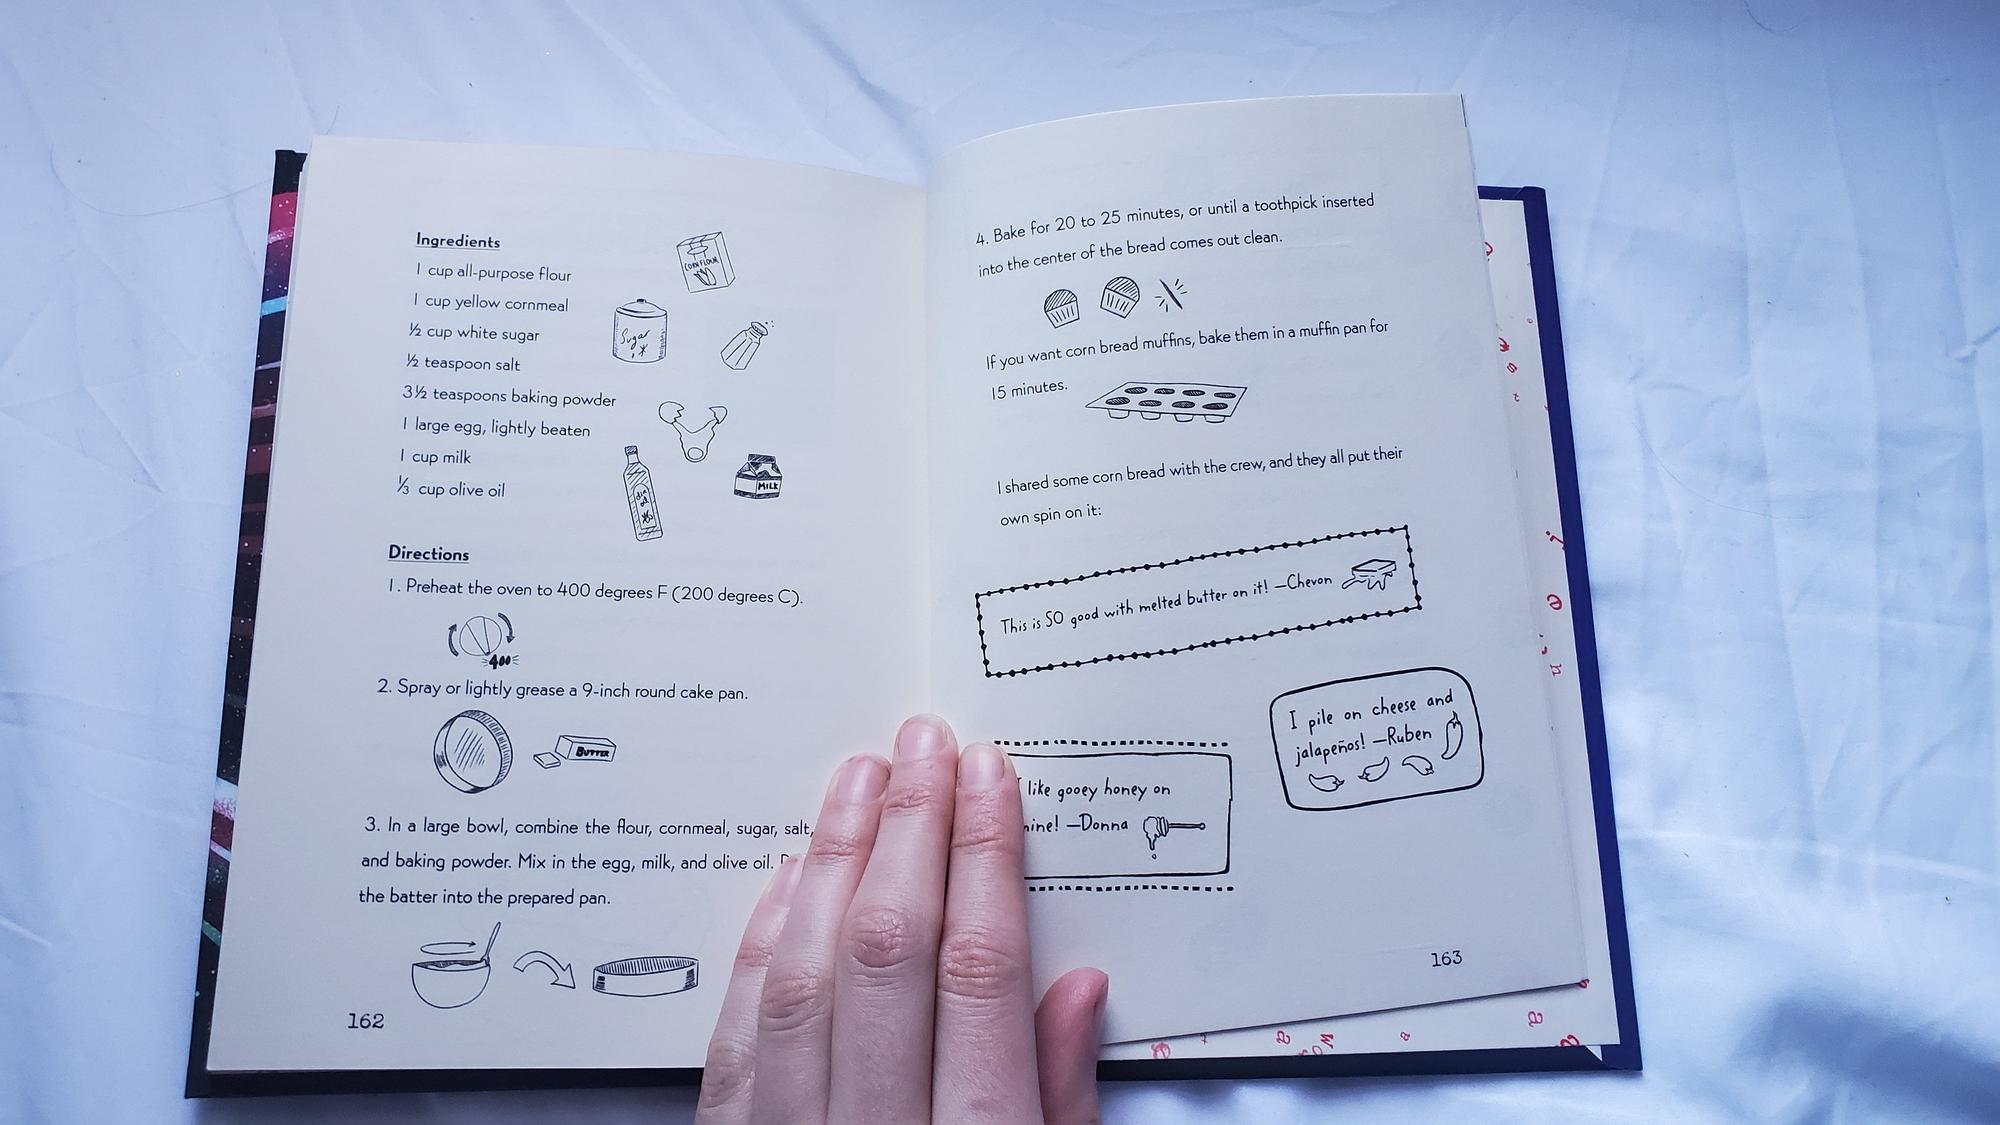 Ingredients
1 cup all-purpose flour
1 cup yellow cornmeal
½ cup white sugar
½ teaspoon salt
3½ teaspoons baking powder
1 large egg, lightly beaten
1 cup milk
⅓ cup olive oil
CORN FLOUR
Sugar
MILK
Directions
1. Preheat the oven to 400 degrees F (200 degrees C).
400
2. Spray or lightly grease a 9-inch round cake pan.
BUTTER
3. In a large bowl, combine the flour, cornmeal, sugar, salt,
and baking powder. Mix in the egg, milk, and olive oil.
the batter into the prepared pan.
162
4. Bake for 20 to 25 minutes, or until a toothpick inserted
into the center of the bread comes out clean.
If you want corn bread muffins, bake them in a muffin pan for
15 minutes.
I shared some corn bread with the crew, and they all put their
own spin on it:
This is SO good with melted butter on it! —Chevon
I pile on cheese and
jalapeños! —Ruben
like gooey honey on
—Donna
163